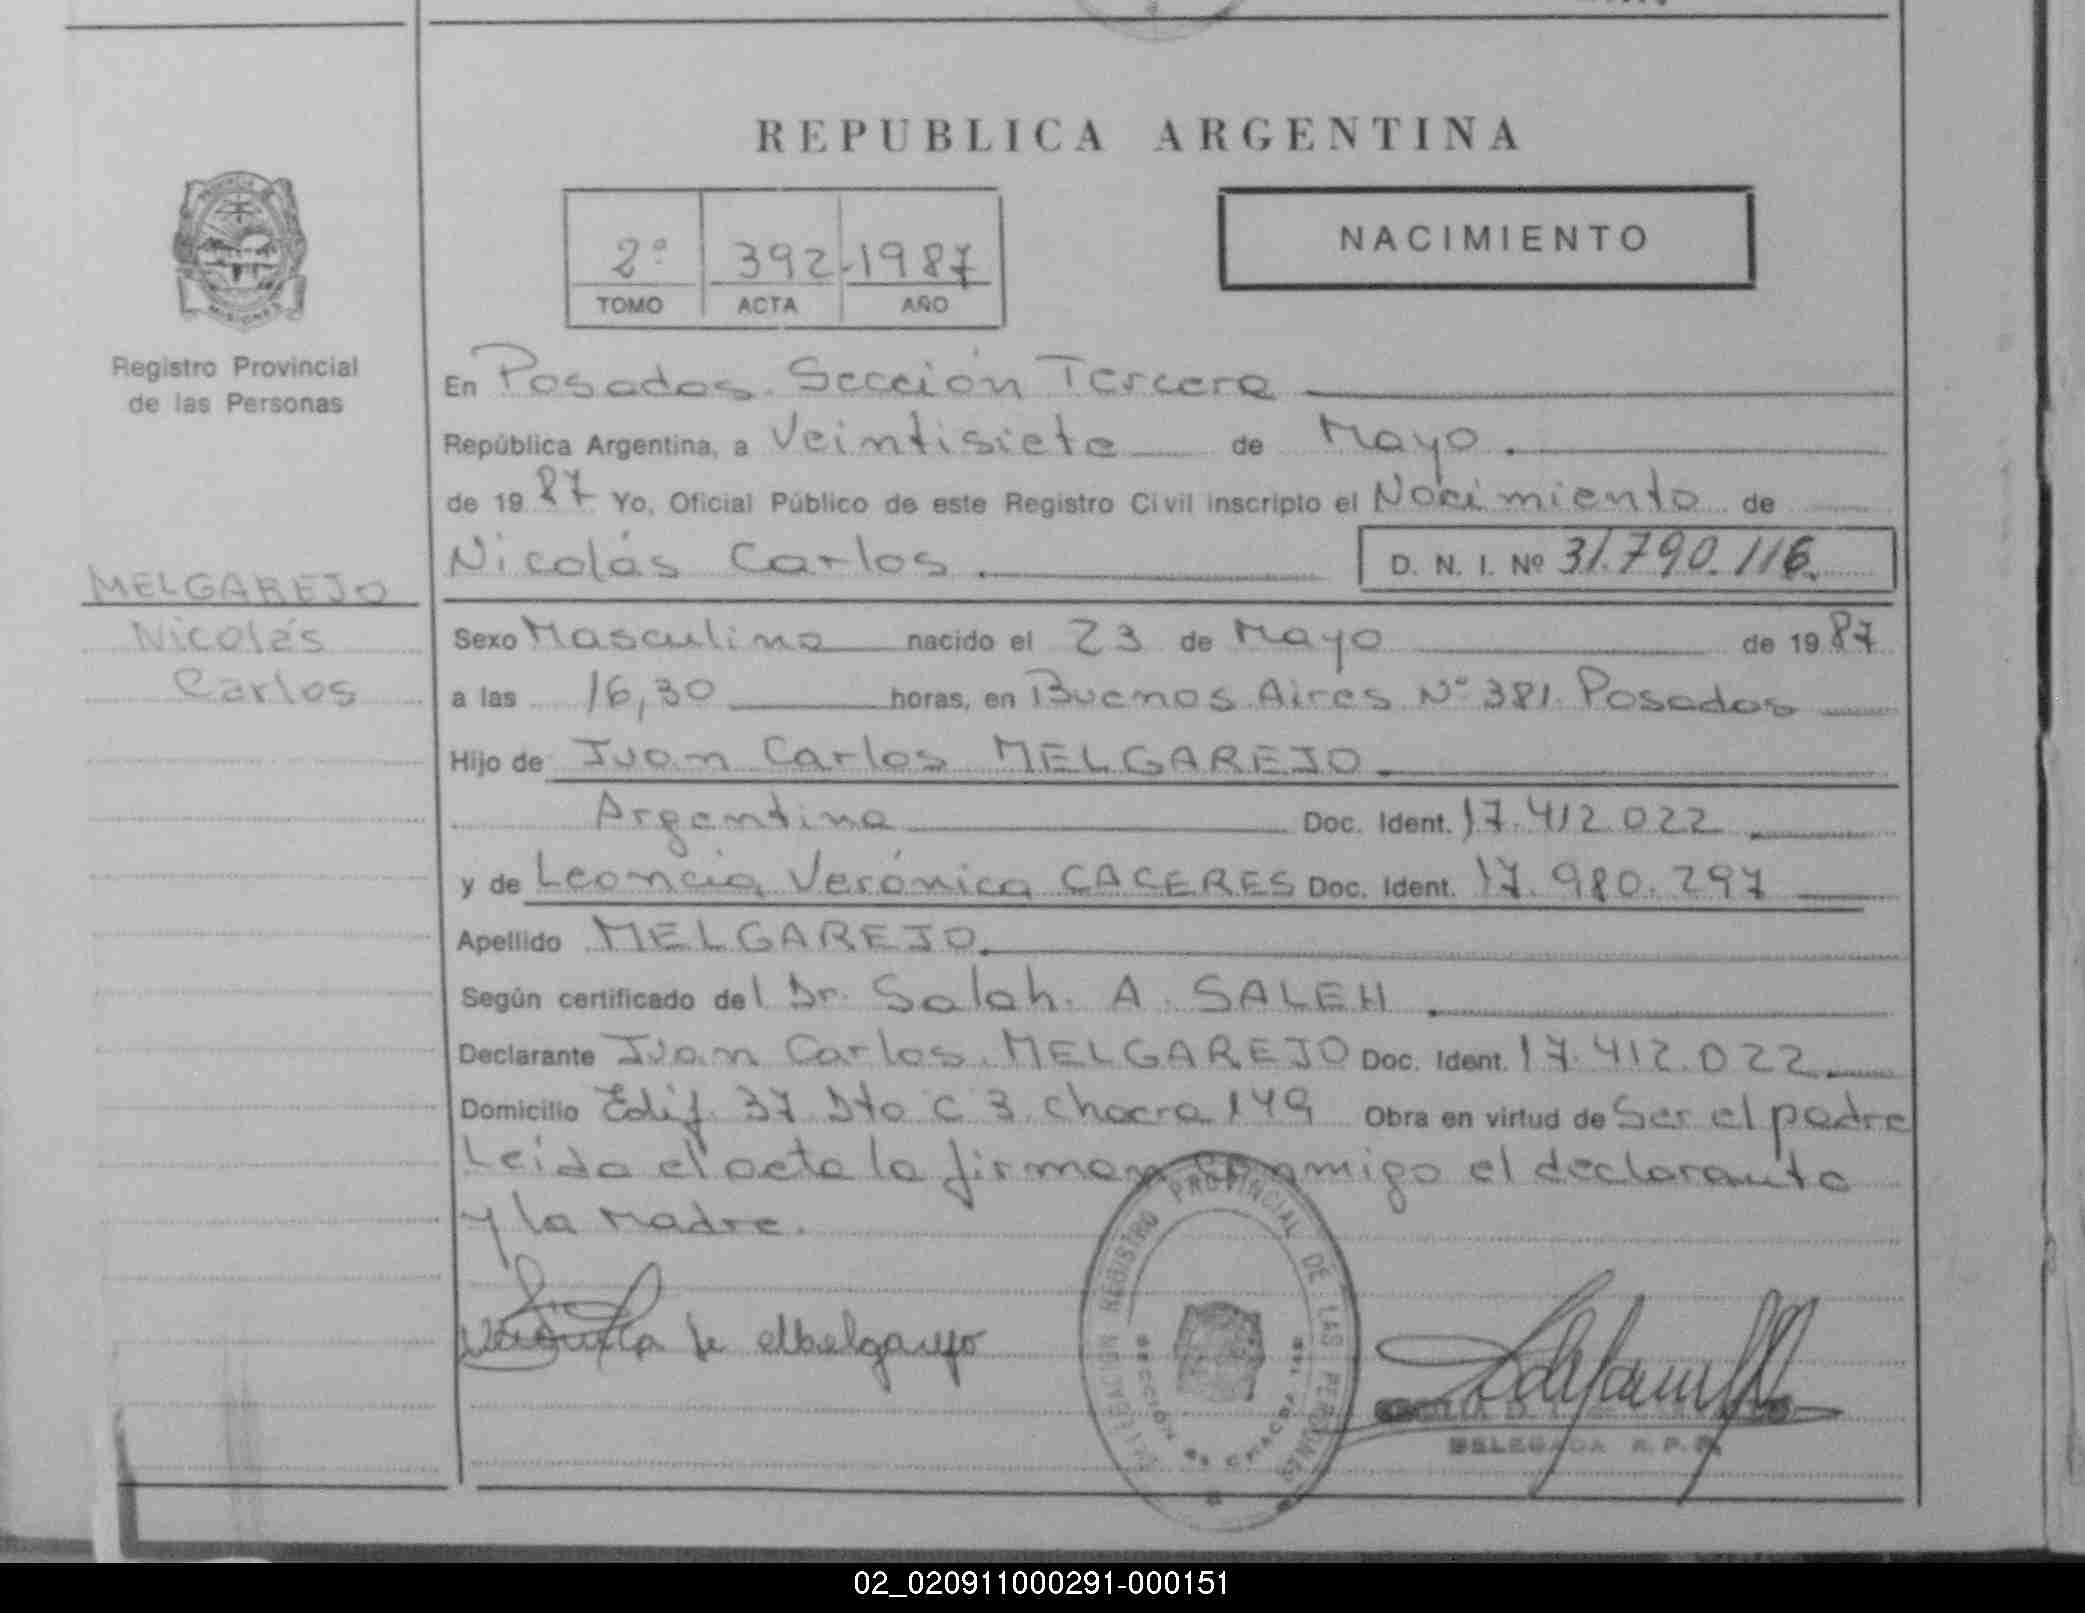 REPUBLICA ARGENTINA
2º 392 - 1987
TOMO ACTA AÑO
NACIMIENTO
Registro Provincial
de las Personas
MELGAREJO
Nicolás
Carlos
En Posadas. Sección Tercera
República Argentina, a Veintisiete de Mayo.
de 1987 Yo, Oficial Público de este Registro Civil inscripto el Nacimiento de
Nicolás Carlos. D. N. I. Nº 31.790.116.
Sexo Masculino nacido el 23 de Mayo de 1987
a las 16,30 horas, en Buenos Aires Nº 381. Posadas
Hijo de Juan Carlos MELGAREJO
Argentina Doc. Ident. 17.412.022
y de Leoncia Verónica CACERES Doc. Ident. 17.980.297
Apellido MELGAREJO.
Según certificado del Dr. Salah. A. SALEH
Declarante Juan Carlos MELGAREJO Doc. Ident. 17.412.022
Domicilio Edif. 37 Dto C 3 chacra 149 Obra en virtud de Ser el padre
Leida el acta la firman conmigo el declarante
y la Madre.
DELEGACION REGISTRO PROVINCIAL DE LAS PERSONAS
DELEGADA R.P.P.
02_020911000291-000151